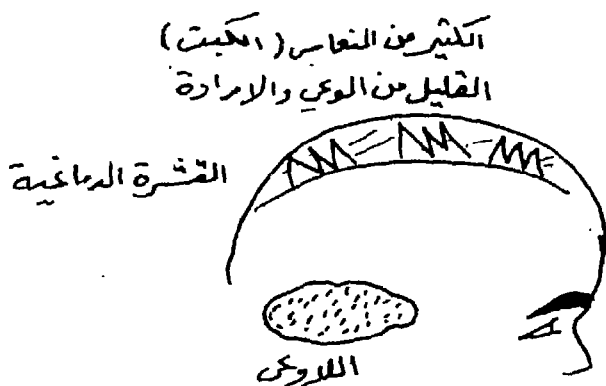 الكثير من النعاس (الكبت)
القليل من الوعي والارادة
القشرة الدماغية
اللاوعي